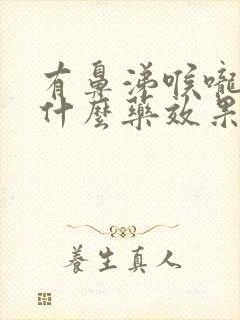 有鼻涕喉嚨
什麼藥效果
養生真人